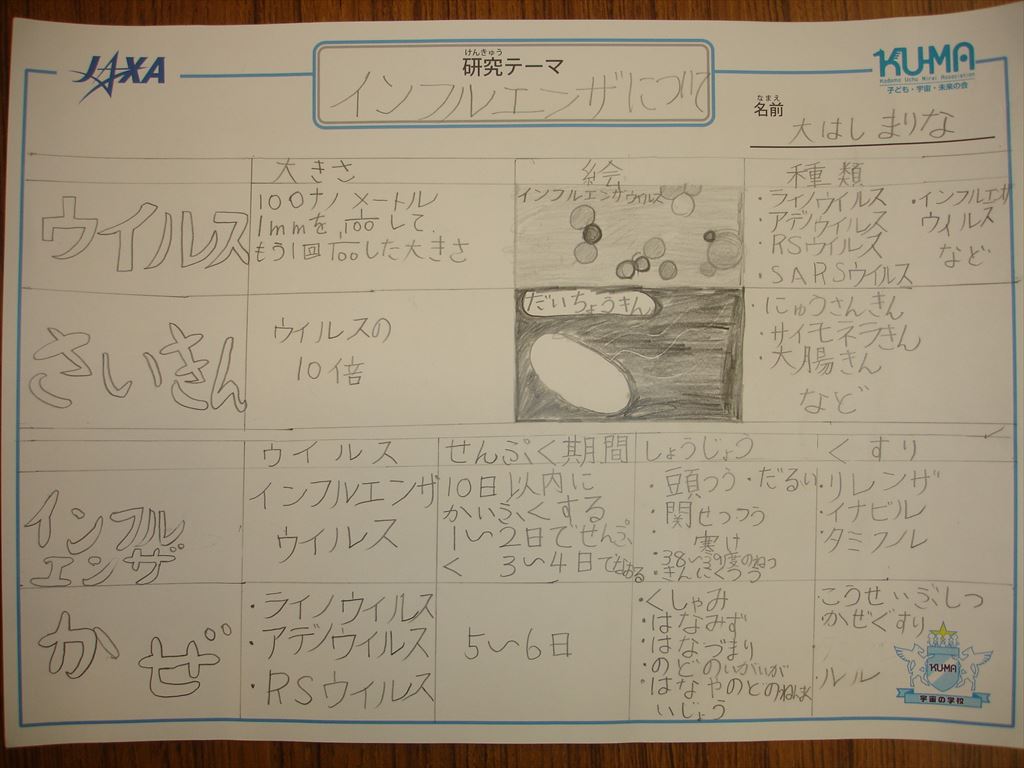 JAXA
けんきゅう
研究テーマ
インフルエンザについて
KU-MA
Kodomo Uchu Mirai Association
子ども・宇宙・未来の会
なまえ
名前
大はし まりな
大きさ
絵
種類
ウイルス
100ナノメートル
1mmを 1/100して
もう1回1/100した大きさ
インフルエンザウイルス
・ライノウイルス
・アデノウイルス
・RSウイルス
・SARSウイルス
・インフルエンザ
ウイルス
など
さいきん
ウイルスの
10倍
だいちょうきん
・にゅうさんきん
・サイモネラきん
・大腸きん
など
ウイルス
せんぷく期間
しょうじょう
くすり
インフル
エンザ
インフルエンザ
ウイルス
10日以内に
かいふくする
1〜2日でせんぷ
く 3〜4日でなおる
・頭つう・だるい
・関せつつう
・寒け
・38〜39度のねつ
・きんにくつう
・リレンザ
・イナビル
・タミフル
かぜ
・ライノウイルス
・アデノウイルス
・RSウイルス
5〜6日
・くしゃみ
・はなみず
・はなづまり
・のどのいがいが
・はなやのどのねんまく
いじょう
こうせいぶしつ
・かぜぐすり
・ルル
KUMA
宇宙の学校